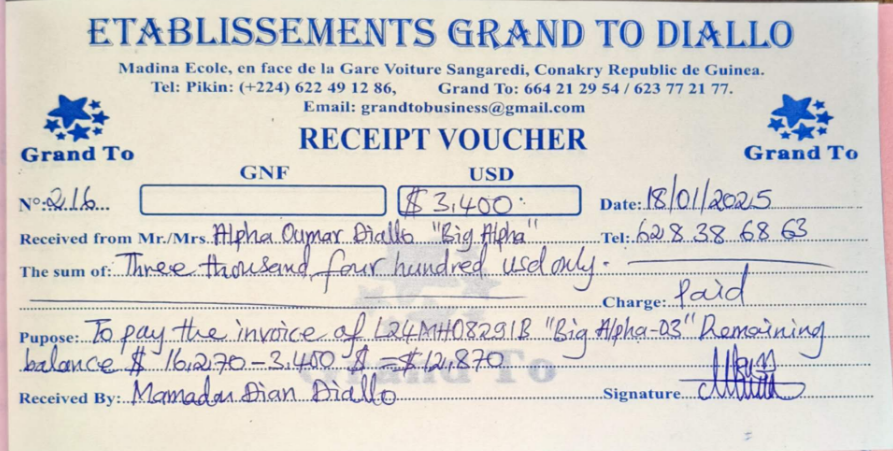 ETABLISSEMENTS GRAND TO DIALLO
Madina Ecole, en face de la Gare Voiture Sangaredi, Conakry Republic de Guinea.
Tel: Pikin: (+224) 622 49 12 86, Grand To: 664 21 29 54 / 623 77 21 77.
Email: grandtobusiness@gmail.com
Grand To
RECEIPT VOUCHER
Grand To
GNF USD
N°: 216 $ 3,400 Date: 18/01/2025
Received from Mr./Mrs. Alpha Oumar Diallo "Big Alpha" Tel: 628 38 68 63
The sum of: Three thousand four hundred usd only.
Charge: Paid
Pupose: To pay the invoice of L24MH08291B "Big Alpha-03" Remaining
balance $ 16,270 - 3,400 $ = $ 12,870
Grand To
Received By: Mamadou Dian Diallo Signature